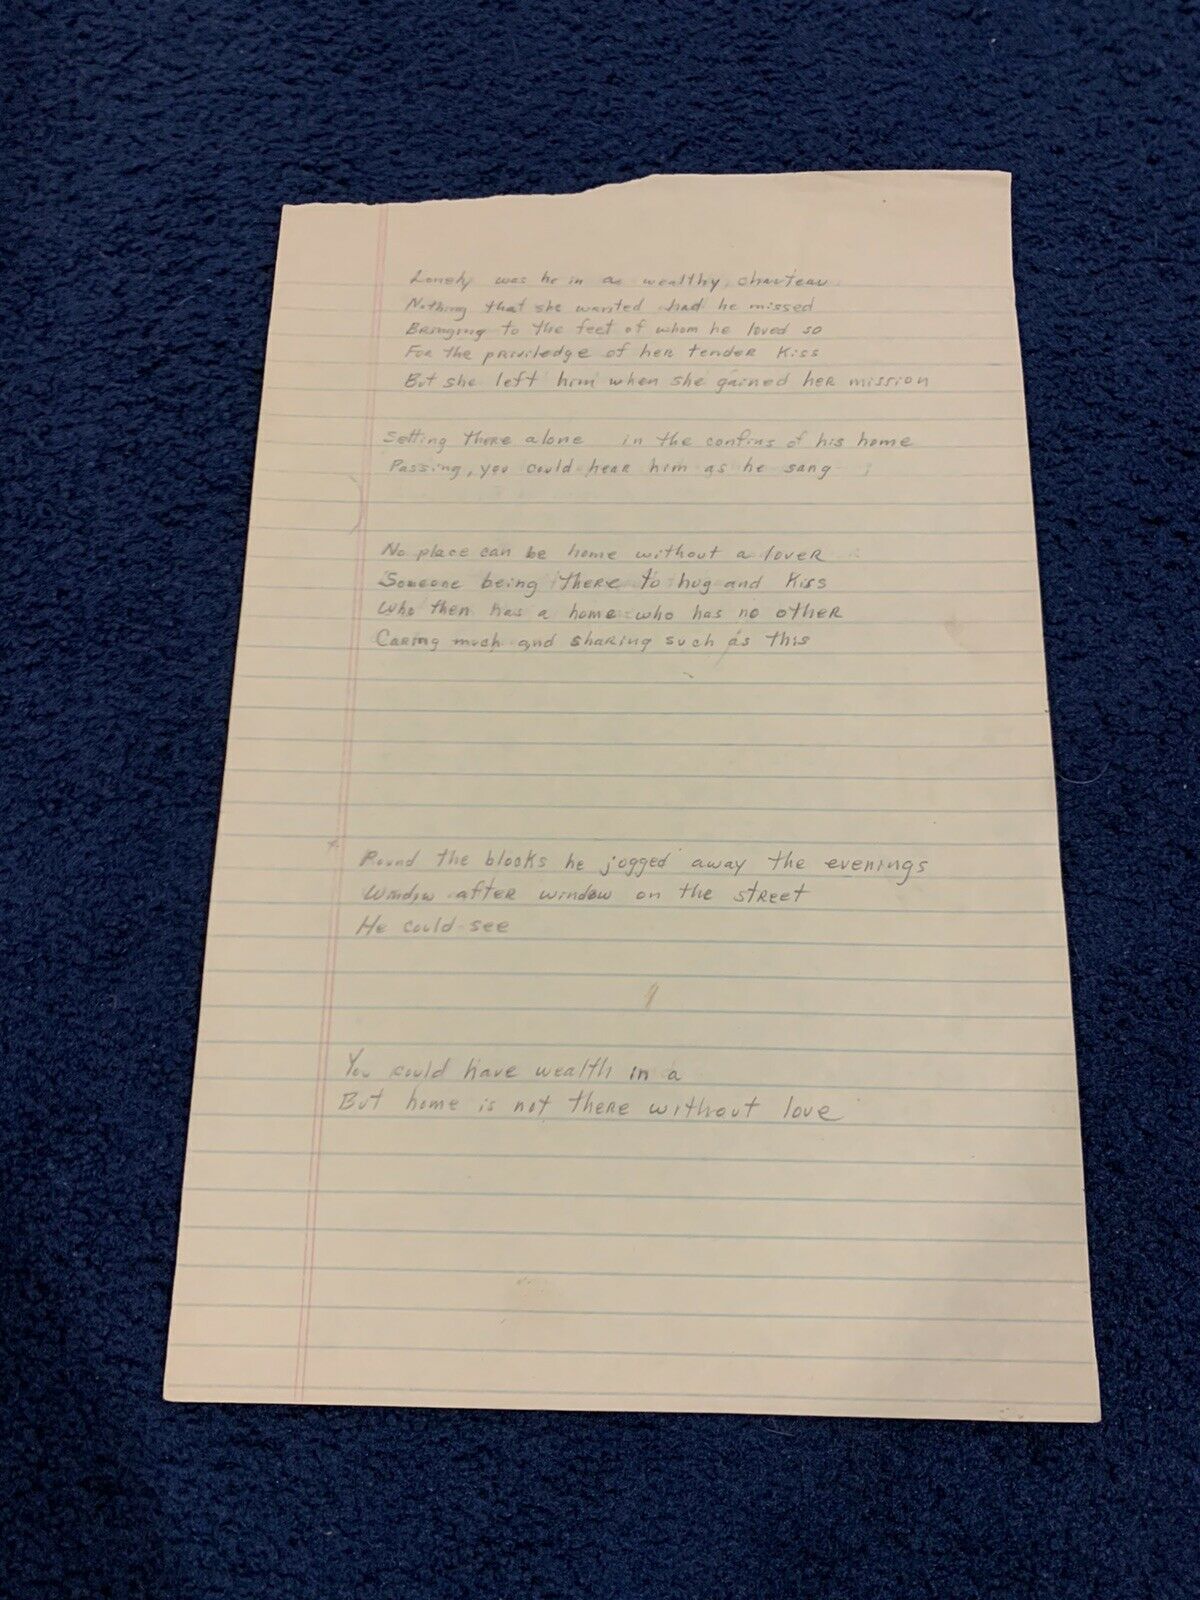 Lonely was he in a wealthy chauteau
Nothing that she wanted had he missed
Bringing to the feet of whom he loved so
For the priviledge of her tender kiss
But she left him when she gained her mission
Setting there alone in the confins of his home
Passing, you could hear him as he sang
No place can be home without a lover
Someone being there to hug and kiss
Who then has a home who has no other
Caring much and sharing such as this
Round the blocks he jogged away the evenings
Window after window on the street
He could see
You could have wealth in a
But home is not there without love